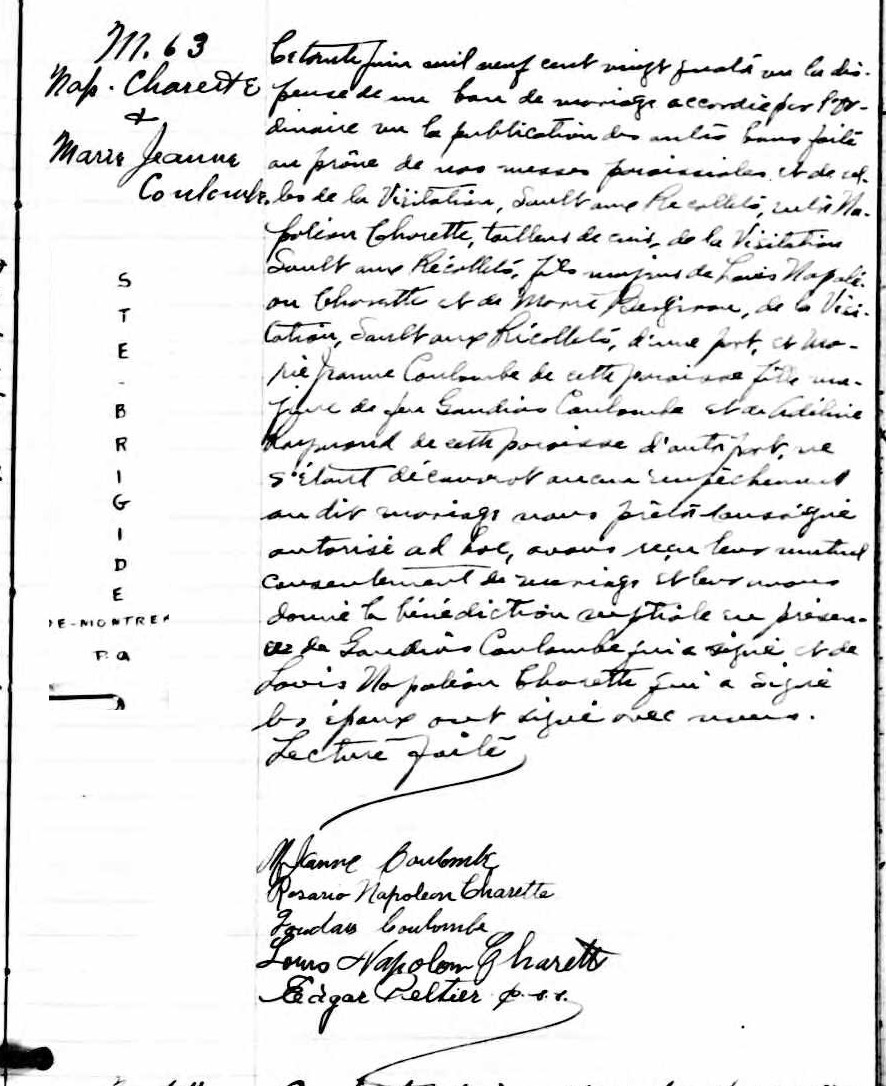 M. 63
Nap. Charette
&
Marie Jeanne
Coulombe
STE-BRIGIDE
DE-MONTREA
P.Q
Ce trente juin mil neuf cent vingt quatre vu la dis-
pense de un ban de mariage accordée par l'Or-
dinaire vu la publication des autres bans faite
au prône de nos messes paroissiales et de cel-
les de la Visitation, Sault aux Récollets, entre Na-
poléon Charette, tailleur de cuir, de la Visitation
Sault aux Récollets, fils majeur de Louis Napolé-
on Charette et de Marie, de la Visi-
tation, Sault aux Récollets, d'une part, et Ma-
rie Jeanne Coulombe de cette paroisse fille ma-
jeure de feu Gaudias Coulombe et de Adéline
Raymond de cette paroisse d'autre part, ne
s'étant découvert aucun empêchement
au dit mariage nous prêtre soussigné
autorisé ad hoc, avons reçu leur mutuel
consentement de mariage et leur avons
donné la bénédiction nuptiale en présen-
ce de Gaudias Coulombe qui a signé et de
Louis Napoléon Charette qui a signé
les époux ont signé avec nous.
Lecture faite
M Jeanne Coulombe
Rosario Napoleon Charette
Goudias Coulombe
Louis Napoleon Charette
Edgar Peltier p.s.s.